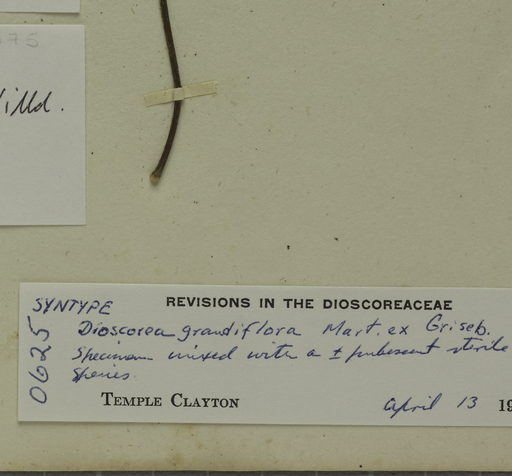 75
illd.
SYNTYPE
REVISIONS IN THE DIOSCOREACEAE
Dioscorea grandiflora Mart. ex Griseb.
Specimen mixed with a ± pubescent sterile
species.
0625
TEMPLE CLAYTON
April 13 19